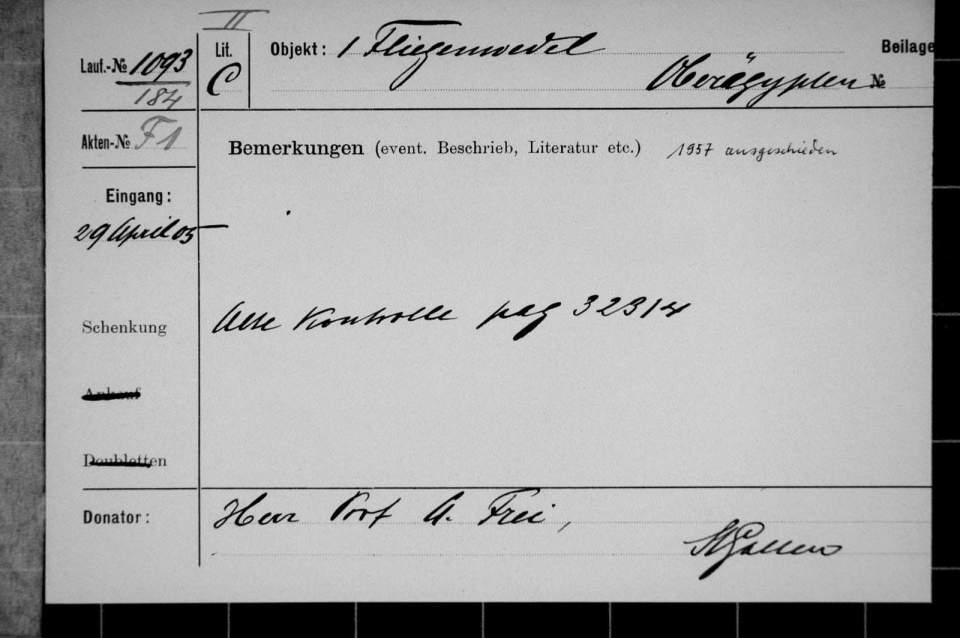 II
Lauf.-№ 1093
184
Lit. C
Objekt: 1 Fliegenwedel
Oberägypten
Beilage
№
Akten-№ F1
Bemerkungen (event. Beschrieb, Literatur etc.) 1957 ausgeschieden
Eingang:
29 April 05
Schenkung
Alte Kontrolle pag 32314
Ankauf
Doubletten
Donator: Herr Prof A. Frei,
St Gallen